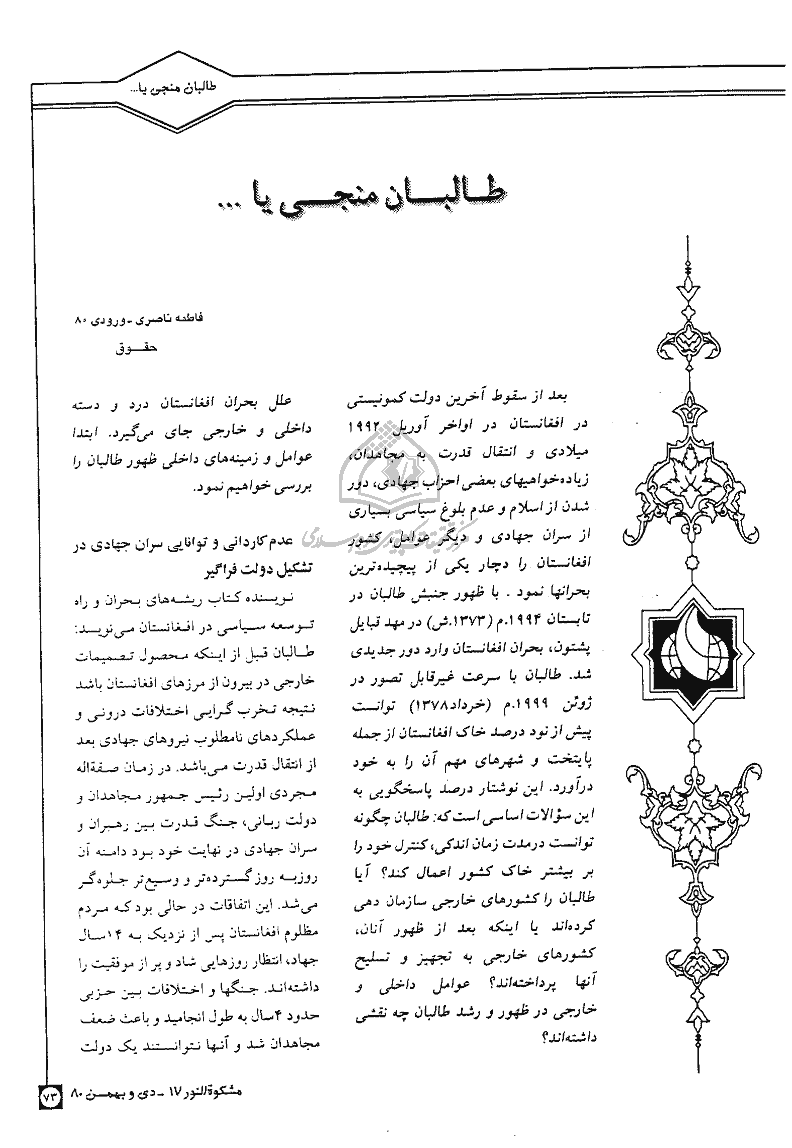 طالبان منجی یا...
طـالبـــان منجـــی یا ...
فاطمه ناصری - ورودی ۸۰
حقــوق
بعد از سقوط آخرین دولت کمونیستی
در افغانستان در اواخر آوریل ۱۹۹۲
میلادی و انتقال قدرت به مجاهدان،
زیاده‌خواهیهای بعضی احزاب جهادی، دور
شدن از اسلام و عدم بلوغ سیاسی بسیاری
از سران جهادی و دیگر عوامل، کشور
افغانستان را دچار یکی از پیچیده‌ترین
بحرانها نمود . با ظهور جنبش طالبان در
تابستان ۱۹۹۴.م (۱۳۷۳.ش) در مهد قبایل
پشتون، بحران افغانستان وارد دور جدیدی
شد. طالبان با سرعت غیرقابل تصور در
ژوئن ۱۹۹۹.م (خرداد۱۳۷۸) توانست
پیش از نود درصد خاک افغانستان از جمله
پایتخت و شهرهای مهم آن را به خود
درآورد. این نوشتار درصد پاسخگویی به
این سؤالات اساسی است که: طالبان چگونه
توانست درمدت زمان اندکی، کنترل خود را
بر بیشتر خاک کشور اعمال کند؟ آیا
طالبان را کشورهای خارجی سازمان دهی
کرده‌اند یا اینکه بعد از ظهور آنان،
کشورهای خارجی به تجهیز و تسلیح
آنها پرداخته‌اند؟ عوامل داخلی و
خارجی در ظهور و رشد طالبان چه نقشی
داشته‌اند؟
علل بحران افغانستان درد و دسته
داخلی و خارجی جای می‌گیرد. ابتدا
عوامل و زمینه‌های داخلی ظهور طالبان را
بررسی خواهیم نمود.
عدم کاردانی و توانایی سران جهادی در
تشکیل دولت فراگیر
نویسنده کتاب ریشه‌های بحران و راه
توسعه سیاسی در افغانستان می‌نویسد:
طالبان قبل از اینکه محصول تصمیمات
خارجی در بیرون از مرزهای افغانستان باشد
نتیجه تخرب گرایی اختلافات درونی و
عملکردهای نامطلوب نیروهای جهادی بعد
از انتقال قدرت می‌باشد. در زمان صفةاله
مجردی اولین رئیس جمهور مجاهدان و
دولت ربانی، جنگ قدرت بین رهبران و
سران جهادی در نهایت خود بود دامنه آن
روزبه روز گسترده‌تر و وسیع‌تر جلوه‌گر
می‌شد. این اتفاقات در حالی بود که مردم
مظلوم افغانستان پس از نزدیک به ۱۴سال
جهاد، انتظار روزهایی شاد و پر از موفقیت را
داشته‌اند. جنگها و اختلافات بین حزبی
حدود ۴سال به طول انجامید و باعث ضعف
مجاهدان شد و آنها نتوانستند یک دولت
مشکوةالنور ۱۷ - دی و بهمن ۸۰
۷۳